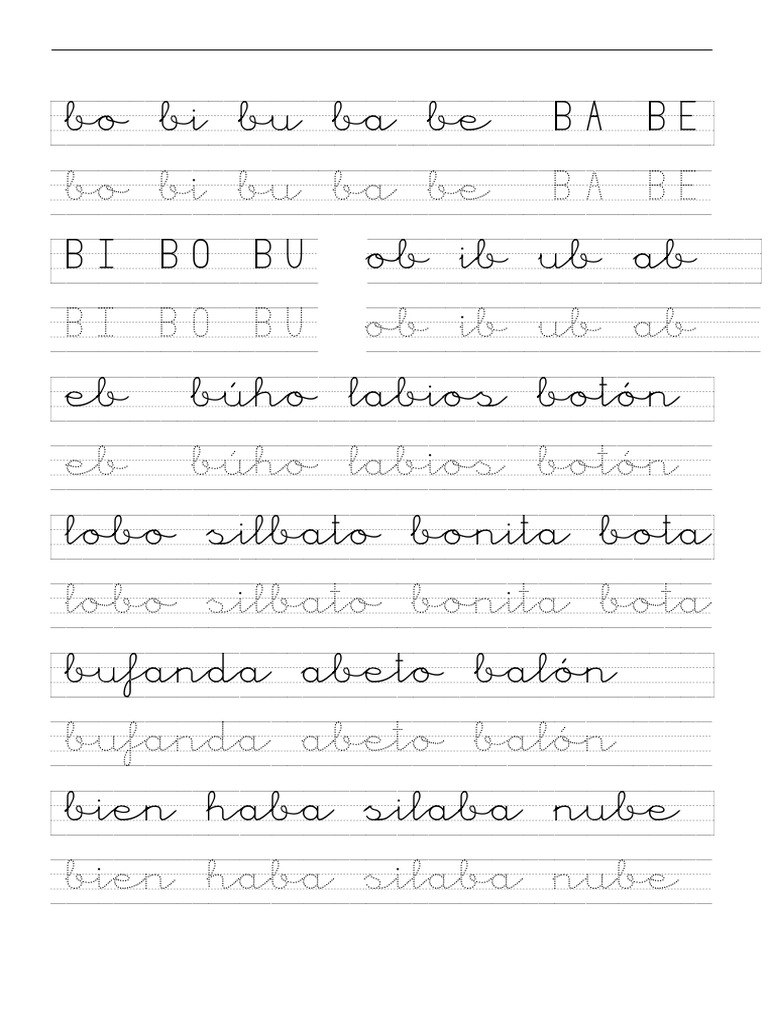 bo bi bu ba be BA BE
bo bi bu ba be BA BE
BI BO BU ob ib ub ab
BI BO BU ob ib ub ab
eb búho labios botón
eb búho labios botón
lobo silbato bonita bota
lobo silbato bonita bota
bufanda abeto balón
bufanda abeto balón
bien haba silaba nube
bien haba silaba nube